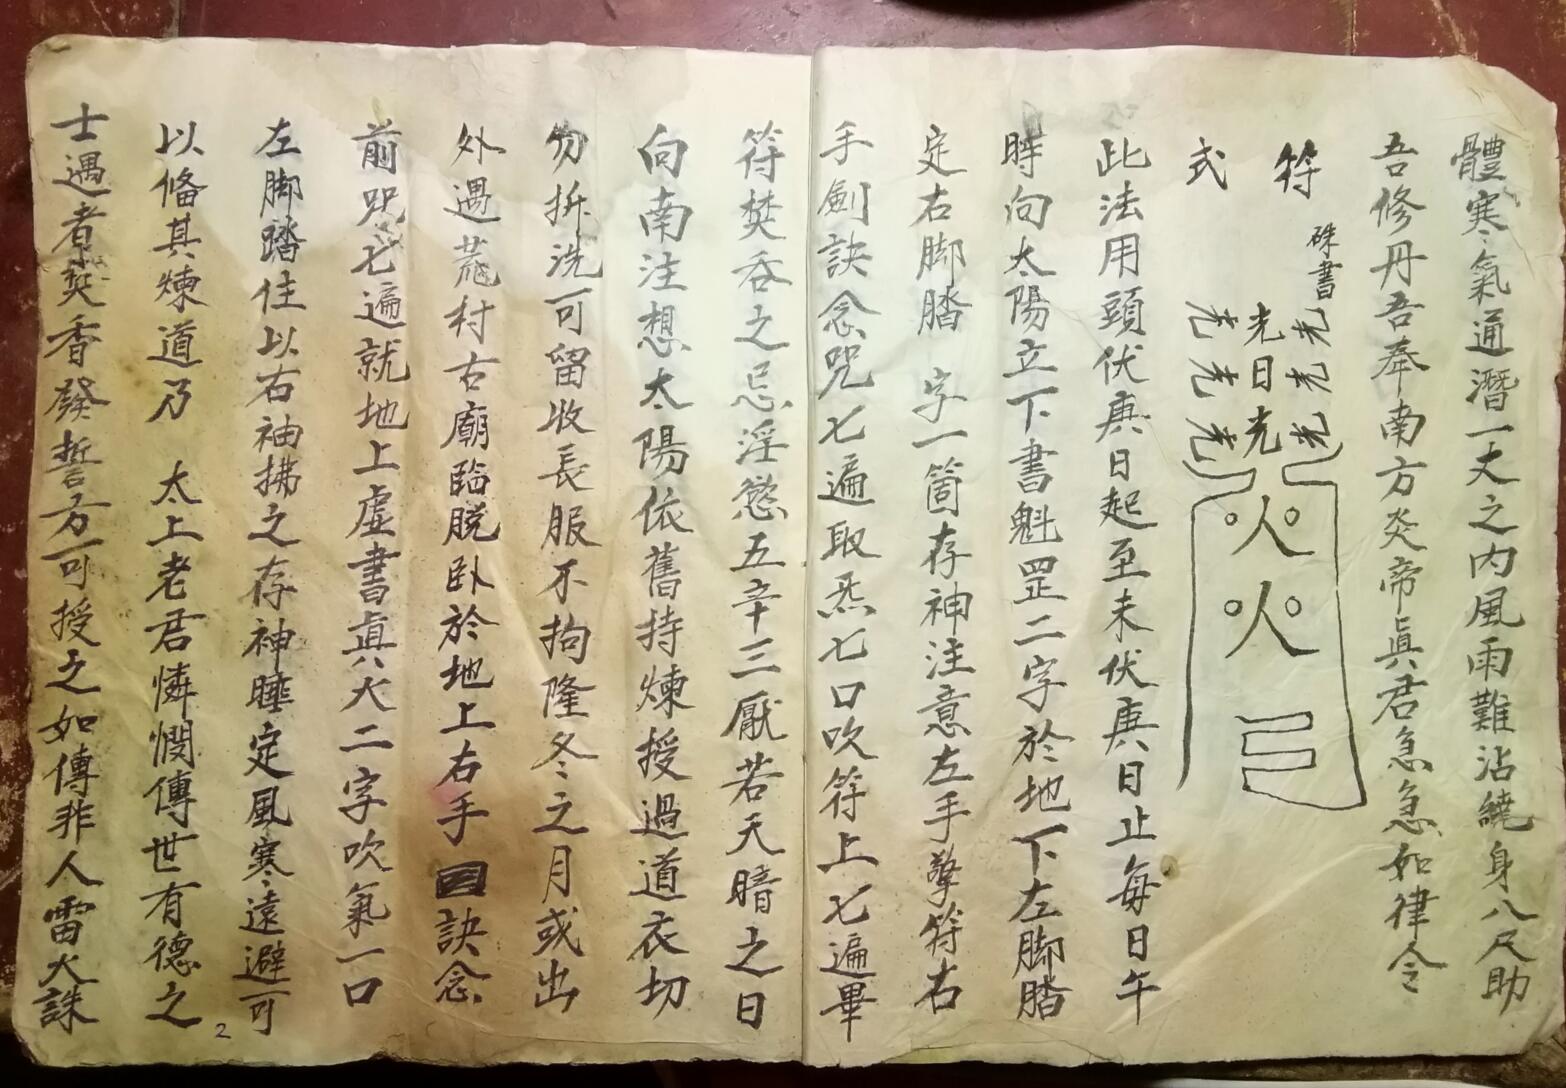 體寒氣通潛一丈之內風雨難沾繞身八尺助
吾修丹吾奉南方炎帝眞君急急如律令
符
硃書
式
光光光
光日光
光光光
火火
此法用頭伏庚日起至末伏庚日止每日午
時向太陽立下書魁罡二字於地下左脚踏
定右脚踏 字一箇存神注意左手擎符右
手劍訣念咒七遍取炁七口吹符上七遍畢
符焚吞之忌淫慾五辛三厭若天暗之日
向南注想太陽依舊持煉授過道衣切
勿拆洗可留收長服不拘隆冬之月或出
外遇荒村古廟臨脫卧於地上右手 訣念
前咒七遍就地上虛書眞火二字吹氣一口
左脚踏住以右袖拂之存神睡定風寒遠避可
以備其煉道乃 太上老君憐憫傳世有德之
士遇者焚香發誓方可授之如傳非人雷火誅
2